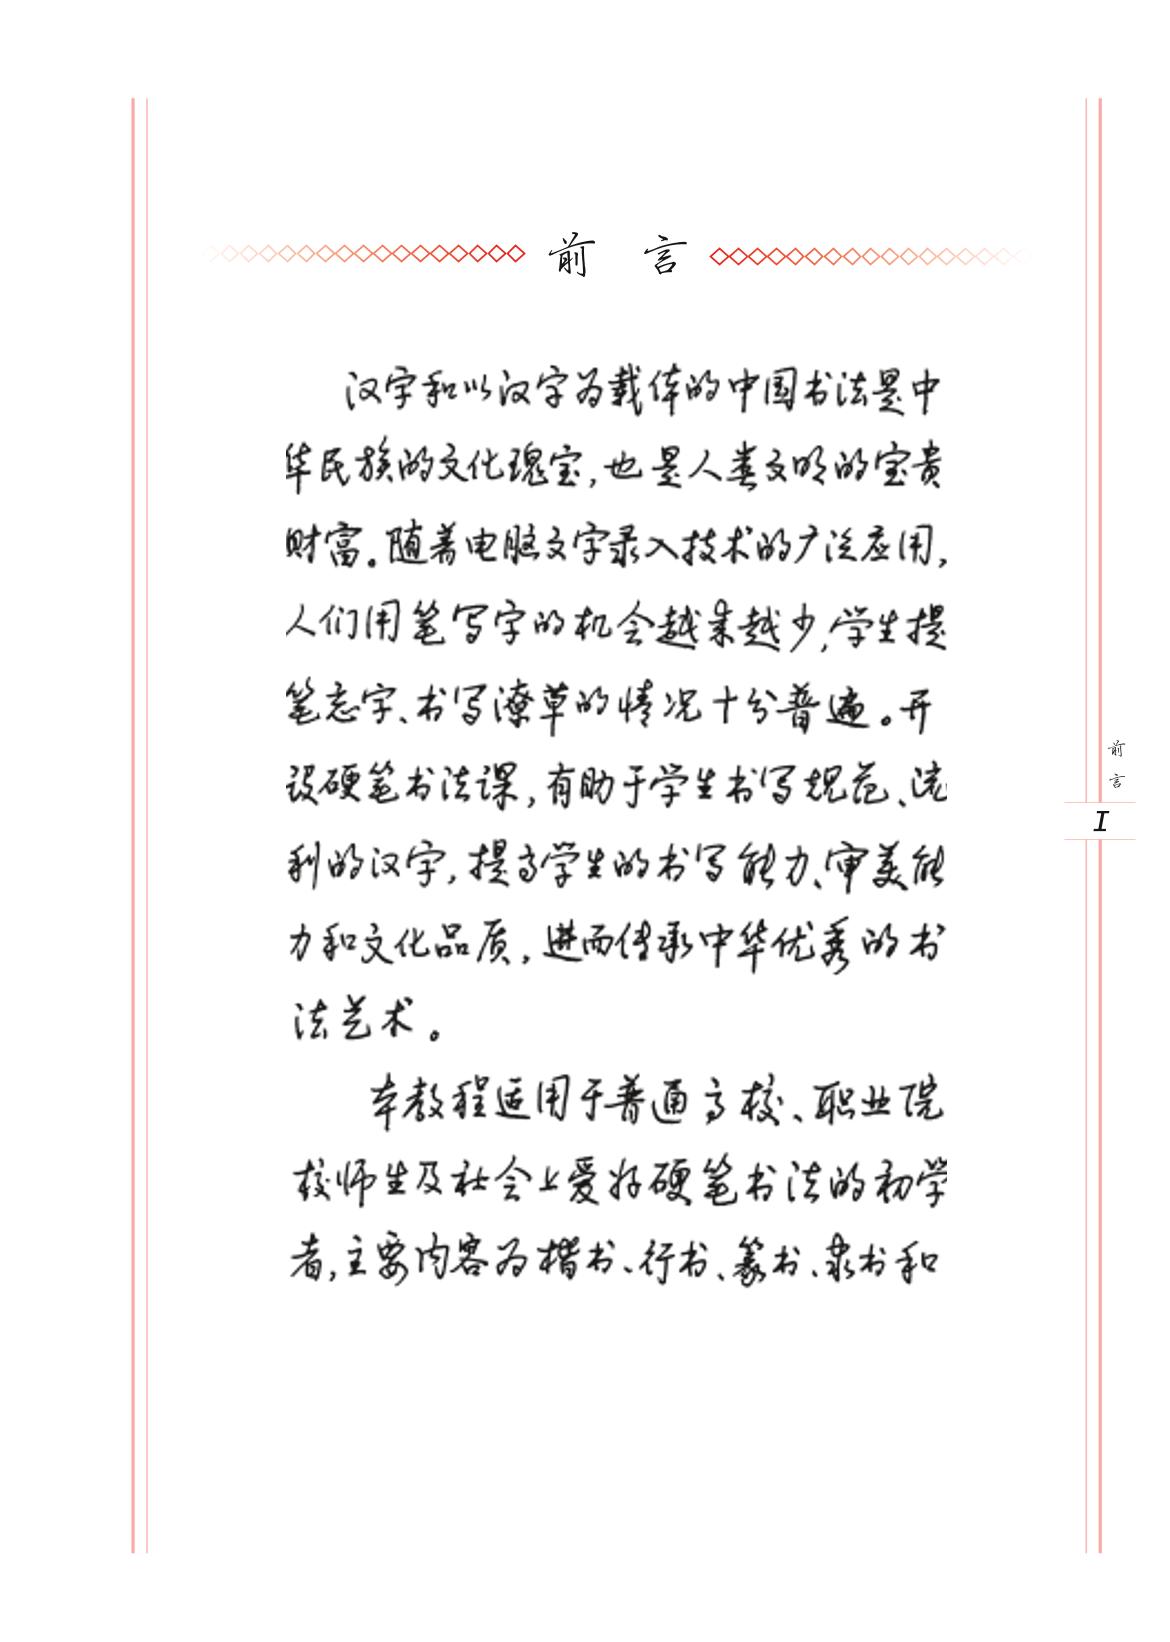 前 言
汉字和以汉字为载体的中国书法是中
华民族的文化瑰宝,也是人类文明的宝贵
财富。随着电脑文字录入技术的广泛应用,
人们用笔写字的机会越来越少,学生提
笔忘字、书写潦草的情况十分普遍。开
设硬笔书法课,有助于学生书写规范、流
利的汉字,提高学生的书写能力、审美能
力和文化品质,进而传承中华优秀的书
法艺术。
本教程适用于普通高校、职业院
校师生及社会上爱好硬笔书法的初学
者,主要内容为楷书、行书、篆书、隶书和
前
言
I